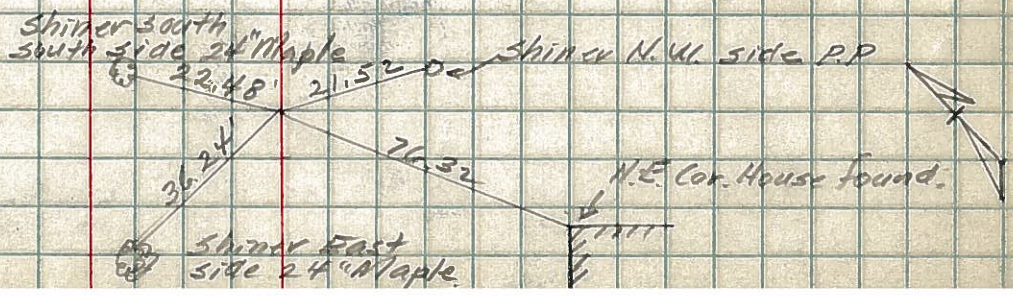 Shiner South
south side 24" Maple
Shiner N.W. side P.P
22.48'
21.52
36.24'
76.32
N.E. Cor. House found.
Shiner East
side 24" Maple